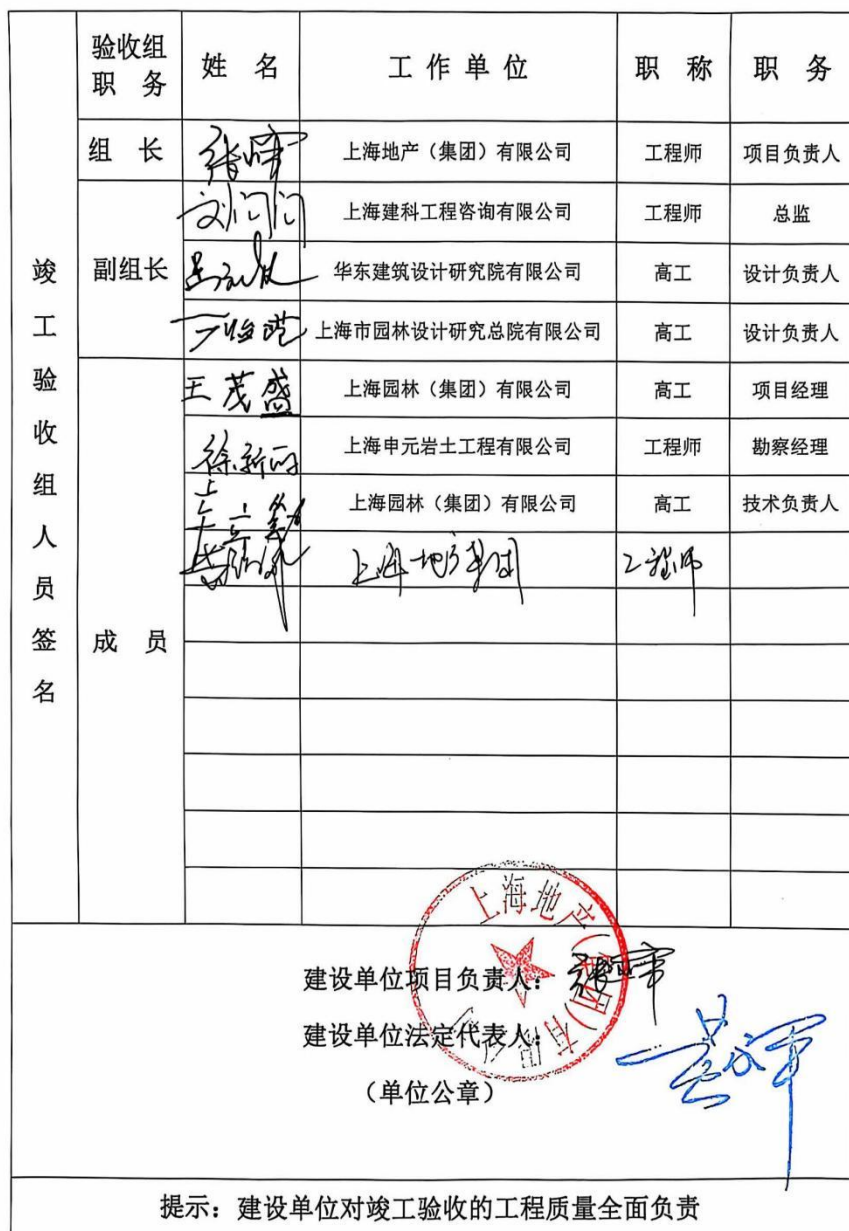 竣工验收组人员签名
验收组职务 姓名 工作单位 职称 职务
组长 上海地产（集团）有限公司 工程师 项目负责人
副组长 上海建科工程咨询有限公司 工程师 总监
华东建筑设计研究院有限公司 高工 设计负责人
上海市园林设计研究总院有限公司 高工 设计负责人
成员 王茂盛 上海园林（集团）有限公司 高工 项目经理
上海申元岩土工程有限公司 工程师 勘察经理
上海园林（集团）有限公司 高工 技术负责人
工程师
上海地产（集团）有限公司
建设单位项目负责人：
建设单位法定代表人：
（单位公章）
提示：建设单位对竣工验收的工程质量全面负责